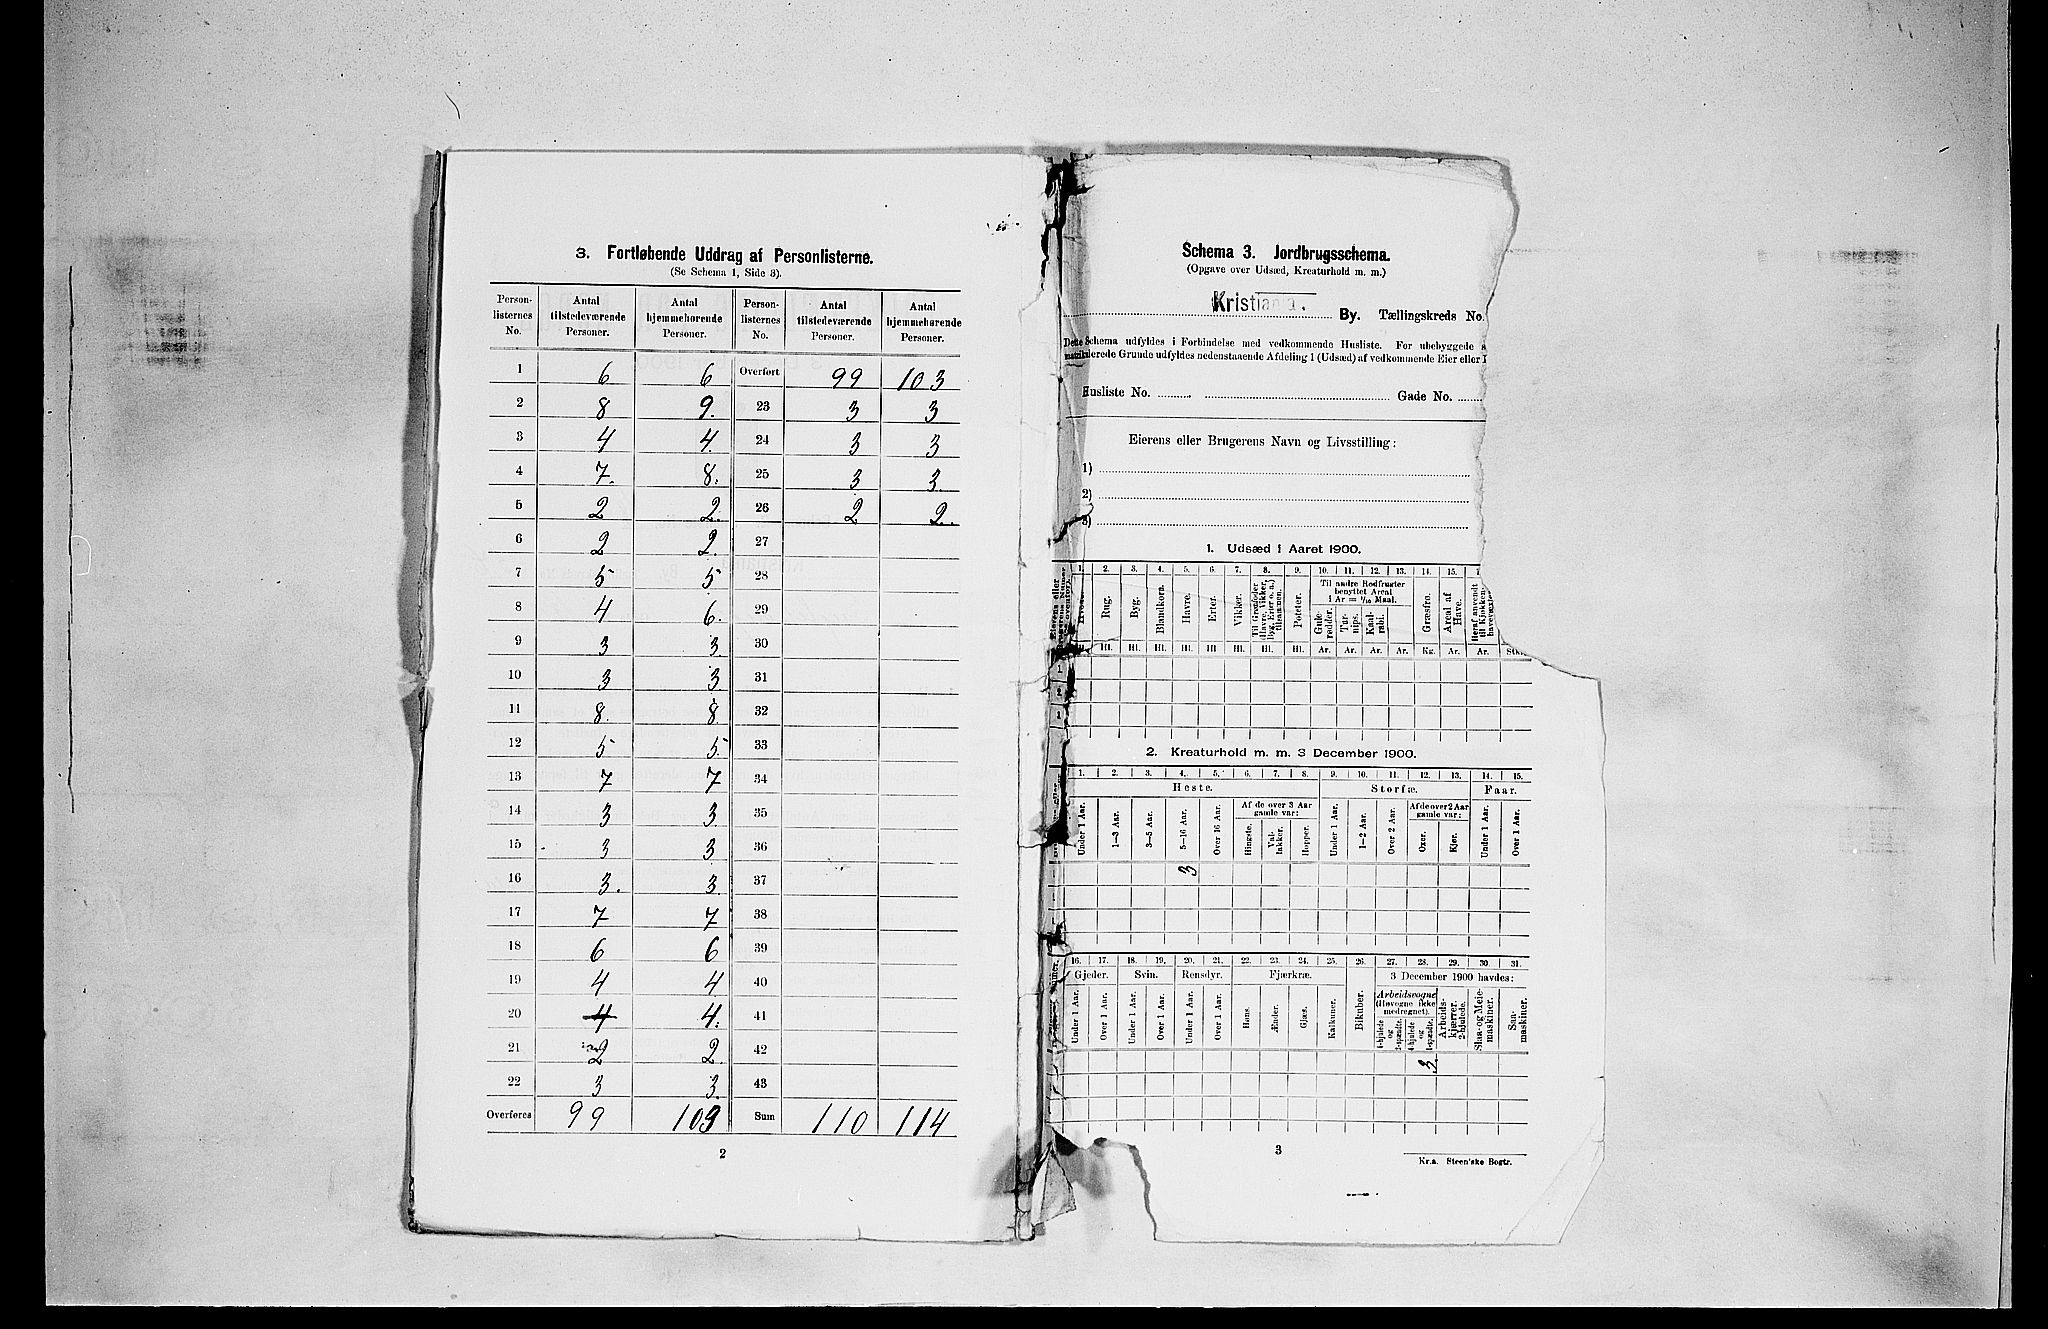 3. Fortløbende Uddrag af Personlisterne.
(Se Schema 1, Side 3).
Person-listernes No. | Antal tilstedeværende Personer. | Antal hjemmehørende Personer. | Person-listernes No. | Antal tilstedeværende Personer. | Antal hjemmehørende Personer.
1 6 6 Overført 99 103
2 8 9. 23 3 3
3 4 4. 24 3 3
4 7. 8. 25 3 3.
5 2 2. 26 2 2.
6 2 2. 27
7 5 5 28
8 4 6. 29
9 3 3. 30
10 3 3. 31
11 8. 8. 32
12 5 5. 33
13 7 7 34
14 3 3 35
15 3 3 36
16 3. 3 37
17 7 7 38
18 6 6 39
19 4 4 40
20 4 4. 41
21 2 2. 42
22 3 3. 43
Overføres 99 103 Sum 110 114
2
Schema 3. Jordbrugsschema.
(Opgave over Udsæd, Kreaturhold m. m.)
Kristiania. By. Tællingskreds No.
Dette Schema udfyldes i Forbindelse med vedkommende Husliste. For ubebyggede
matrikulerede Grunde udfyldes nedenstaaende Afdeling 1 (Udsæd) af vedkommende Eier eller
Husliste No. Gade No.
Eierens eller Brugerens Navn og Livsstilling:
1)
2)
3)
1. Udsæd i Aaret 1900.
1. 2. 3. 4. 5. 6. 7. 8. 9. 10. 11. 12. 13. 14. 15.
Til andre Rodfrugter benyttet Areal 1 Ar = 1/10 Maal.
Rug. Byg. Blandkorn. Havre. Erter. Vikker. Til Grønfoder (Havre, Vikker, Byg, Erter o. a.) tilsammen. Poteter. Gulerødder. Turnips. Kaalrabi. Græsfrø. Areal af Have. Heraf anvendt til Kjøkkenhavevæxter
Hl. Hl. Hl. Hl. Hl. Hl. Hl. Hl. Hl. Ar. Ar. Ar. Ar. Kg. Ar. Ar. Stk.
2. Kreaturhold m. m. 3 December 1900.
1. 2. 3. 4. 5. 6. 7. 8. 9. 10. 11. 12. 13. 14. 15.
Heste. Storfæ. Faar.
Af de over 3 Aar gamle var: Af de over 2 Aar gamle var:
Under 1 Aar. 1—3 Aar. 3—5 Aar. 5—16 Aar. Over 16 Aar. Hingste. Vallakker. Hopper. Under 1 Aar. 1—2 Aar. Over 2 Aar. Oxer. Kjør. Under 1 Aar. Over 1 Aar.
3
16. 17. 18. 19. 20. 21. 22. 23. 24. 25. 26. 27. 28. 29. 30. 31.
Gjeder. Svin. Rensdyr. Fjærkræ. 3 December 1900 havdes:
Arbeidsvogne (Høvogne ikke medregnet).
Under 1 Aar. Over 1 Aar. Under 1 Aar. Over 1 Aar. Under 1 Aar. Over 1 Aar. Høns. Ænder. Gjæs. Kalkuner. Bikuber. 4-hjulede og 2-spændte. 4-hjulede og 1-spændte. Arbeidskjærrer, 2-hjulede. Slaa- og Meiemaskiner. Saamaskiner.
3.
3
Kr.a. Steen'ske Bogtr.